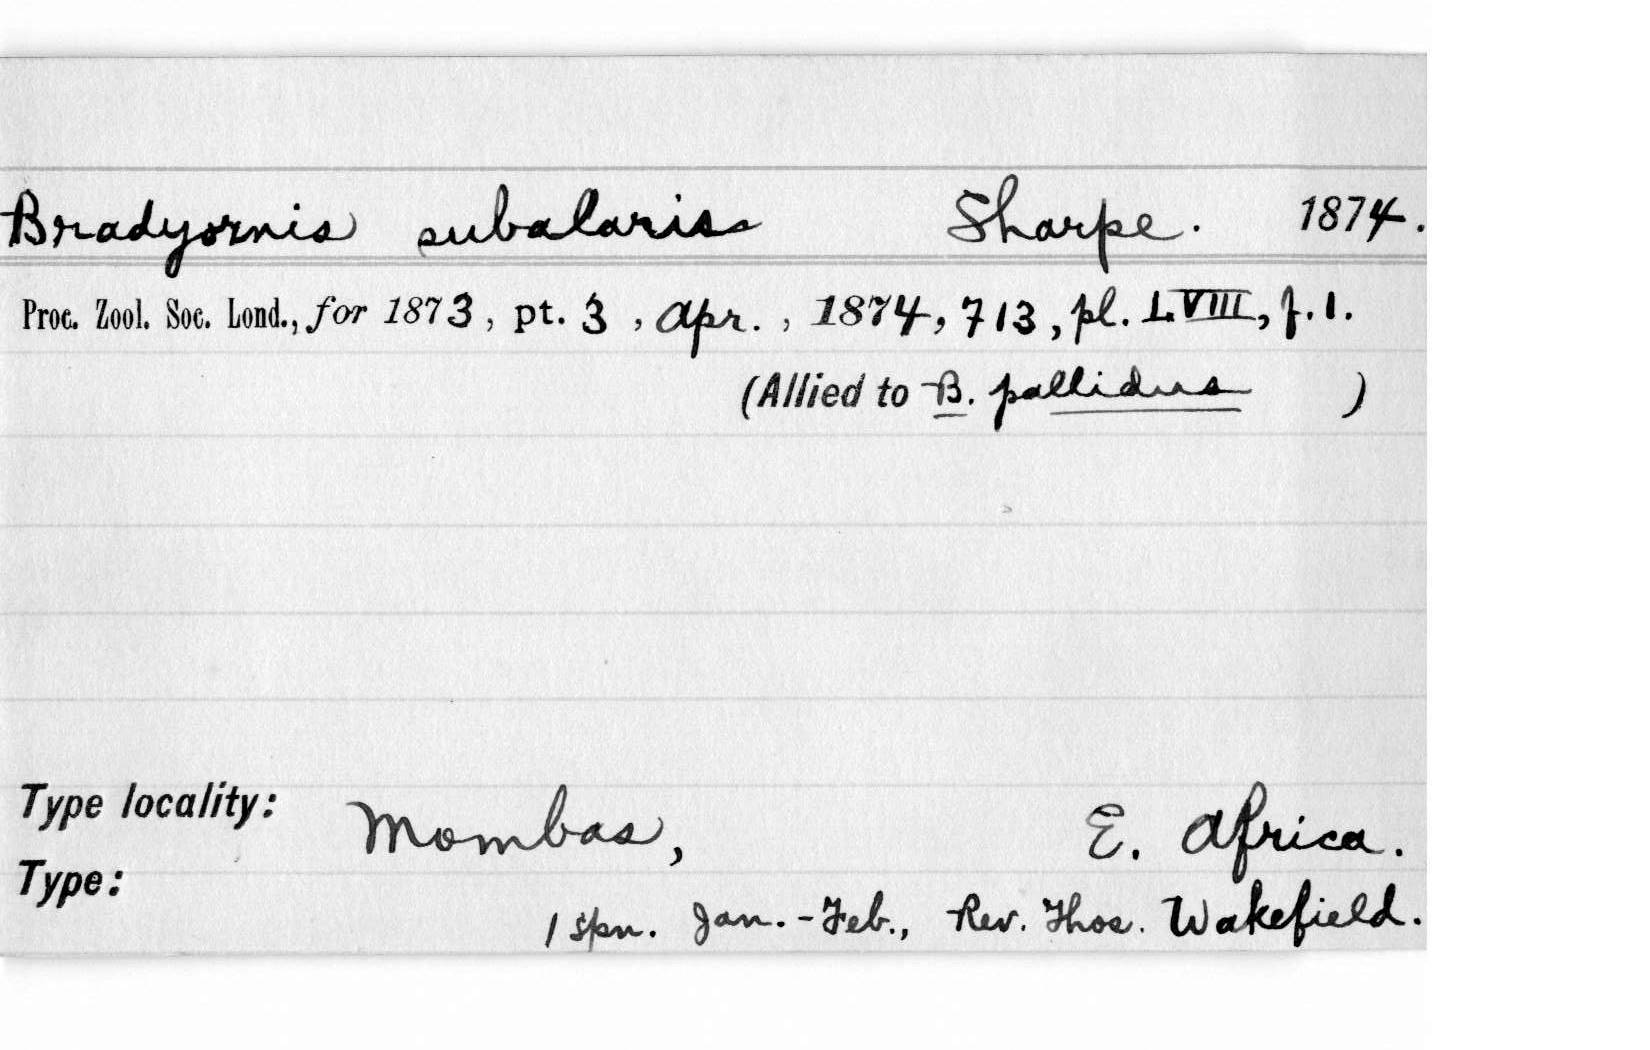 Bradyornis subalaris Sharpe. 1874.
Proc. Zool. Soc. Lond., for 1873, pt. 3, Apr., 1874, 713, pl. LVIII, f. 1.
(Allied to B. pallidus )
Type locality: Mombas, E. Africa.
Type:
1 spn. Jan.-Feb., Rev. Thos. Wakefield.